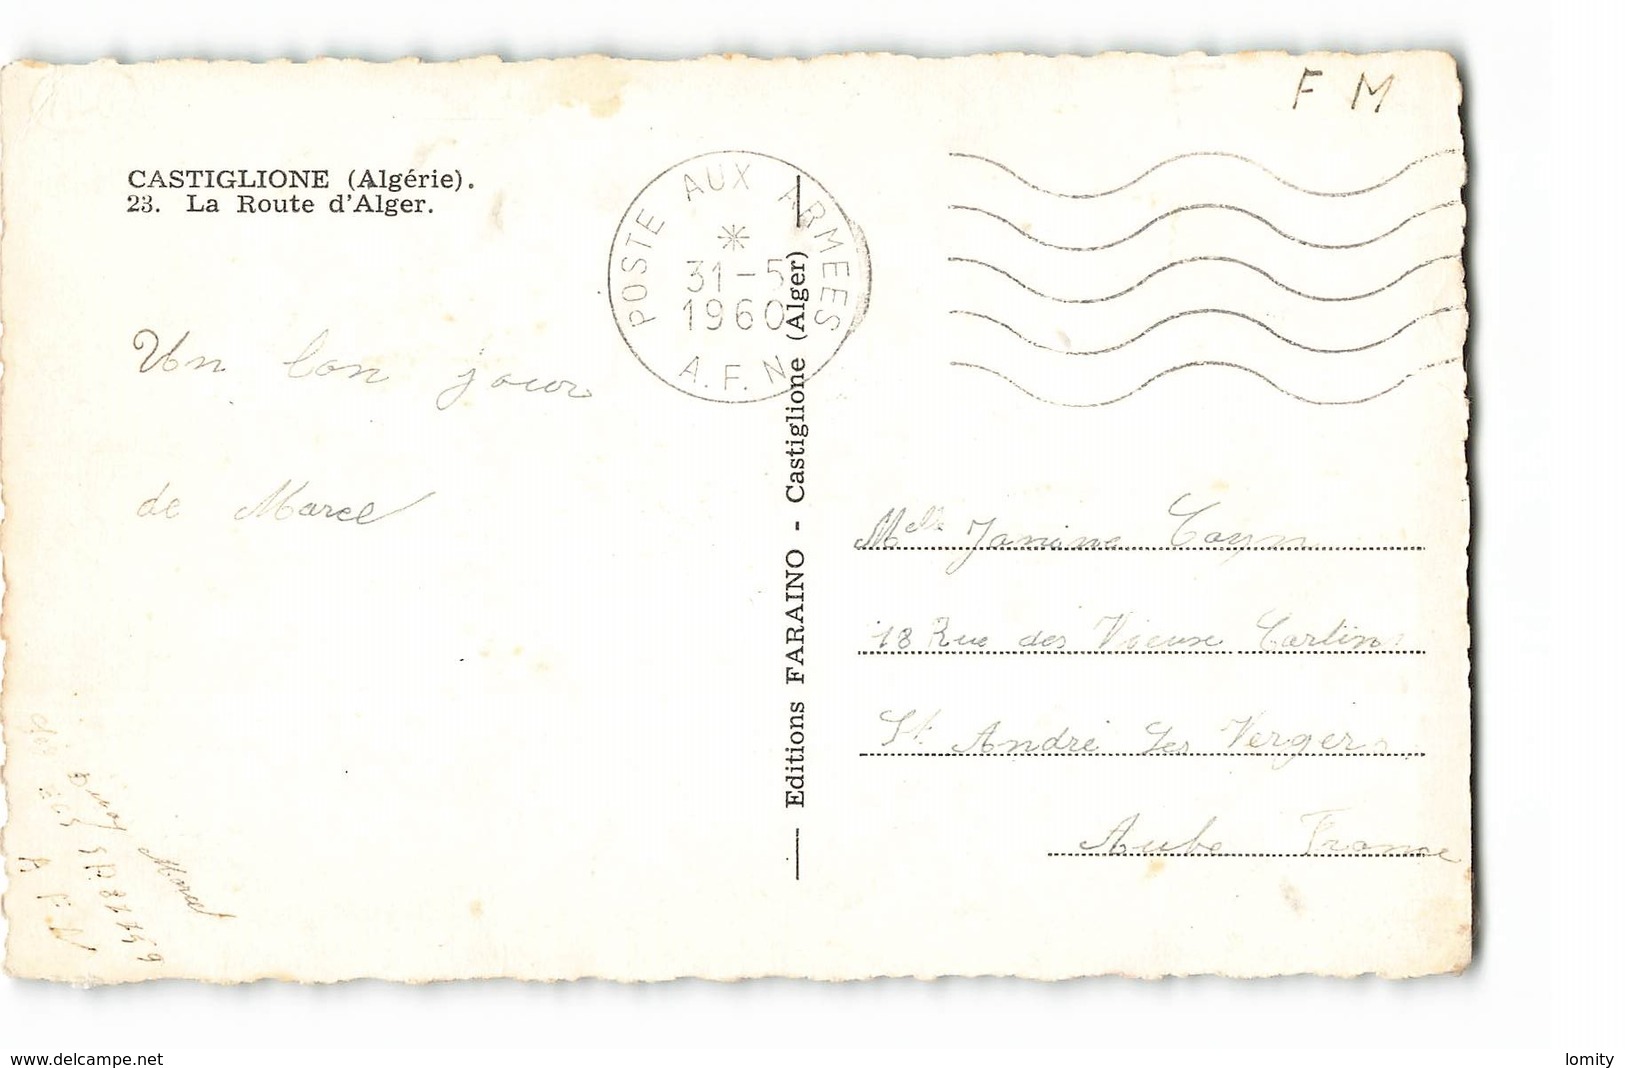 F M
CASTIGLIONE (Algérie).
23. La Route d'Alger.
POSTE AUX ARMEES
31-5
1960
A.F.N
Un bon jour
de Marcel
Editions FARAINO - Castiglione (Alger)
Melle Janine
18 Rue des Vieux Carlins
St André les Vergers
Aube France
Marcel
A F N
www.delcampe.net
lomity